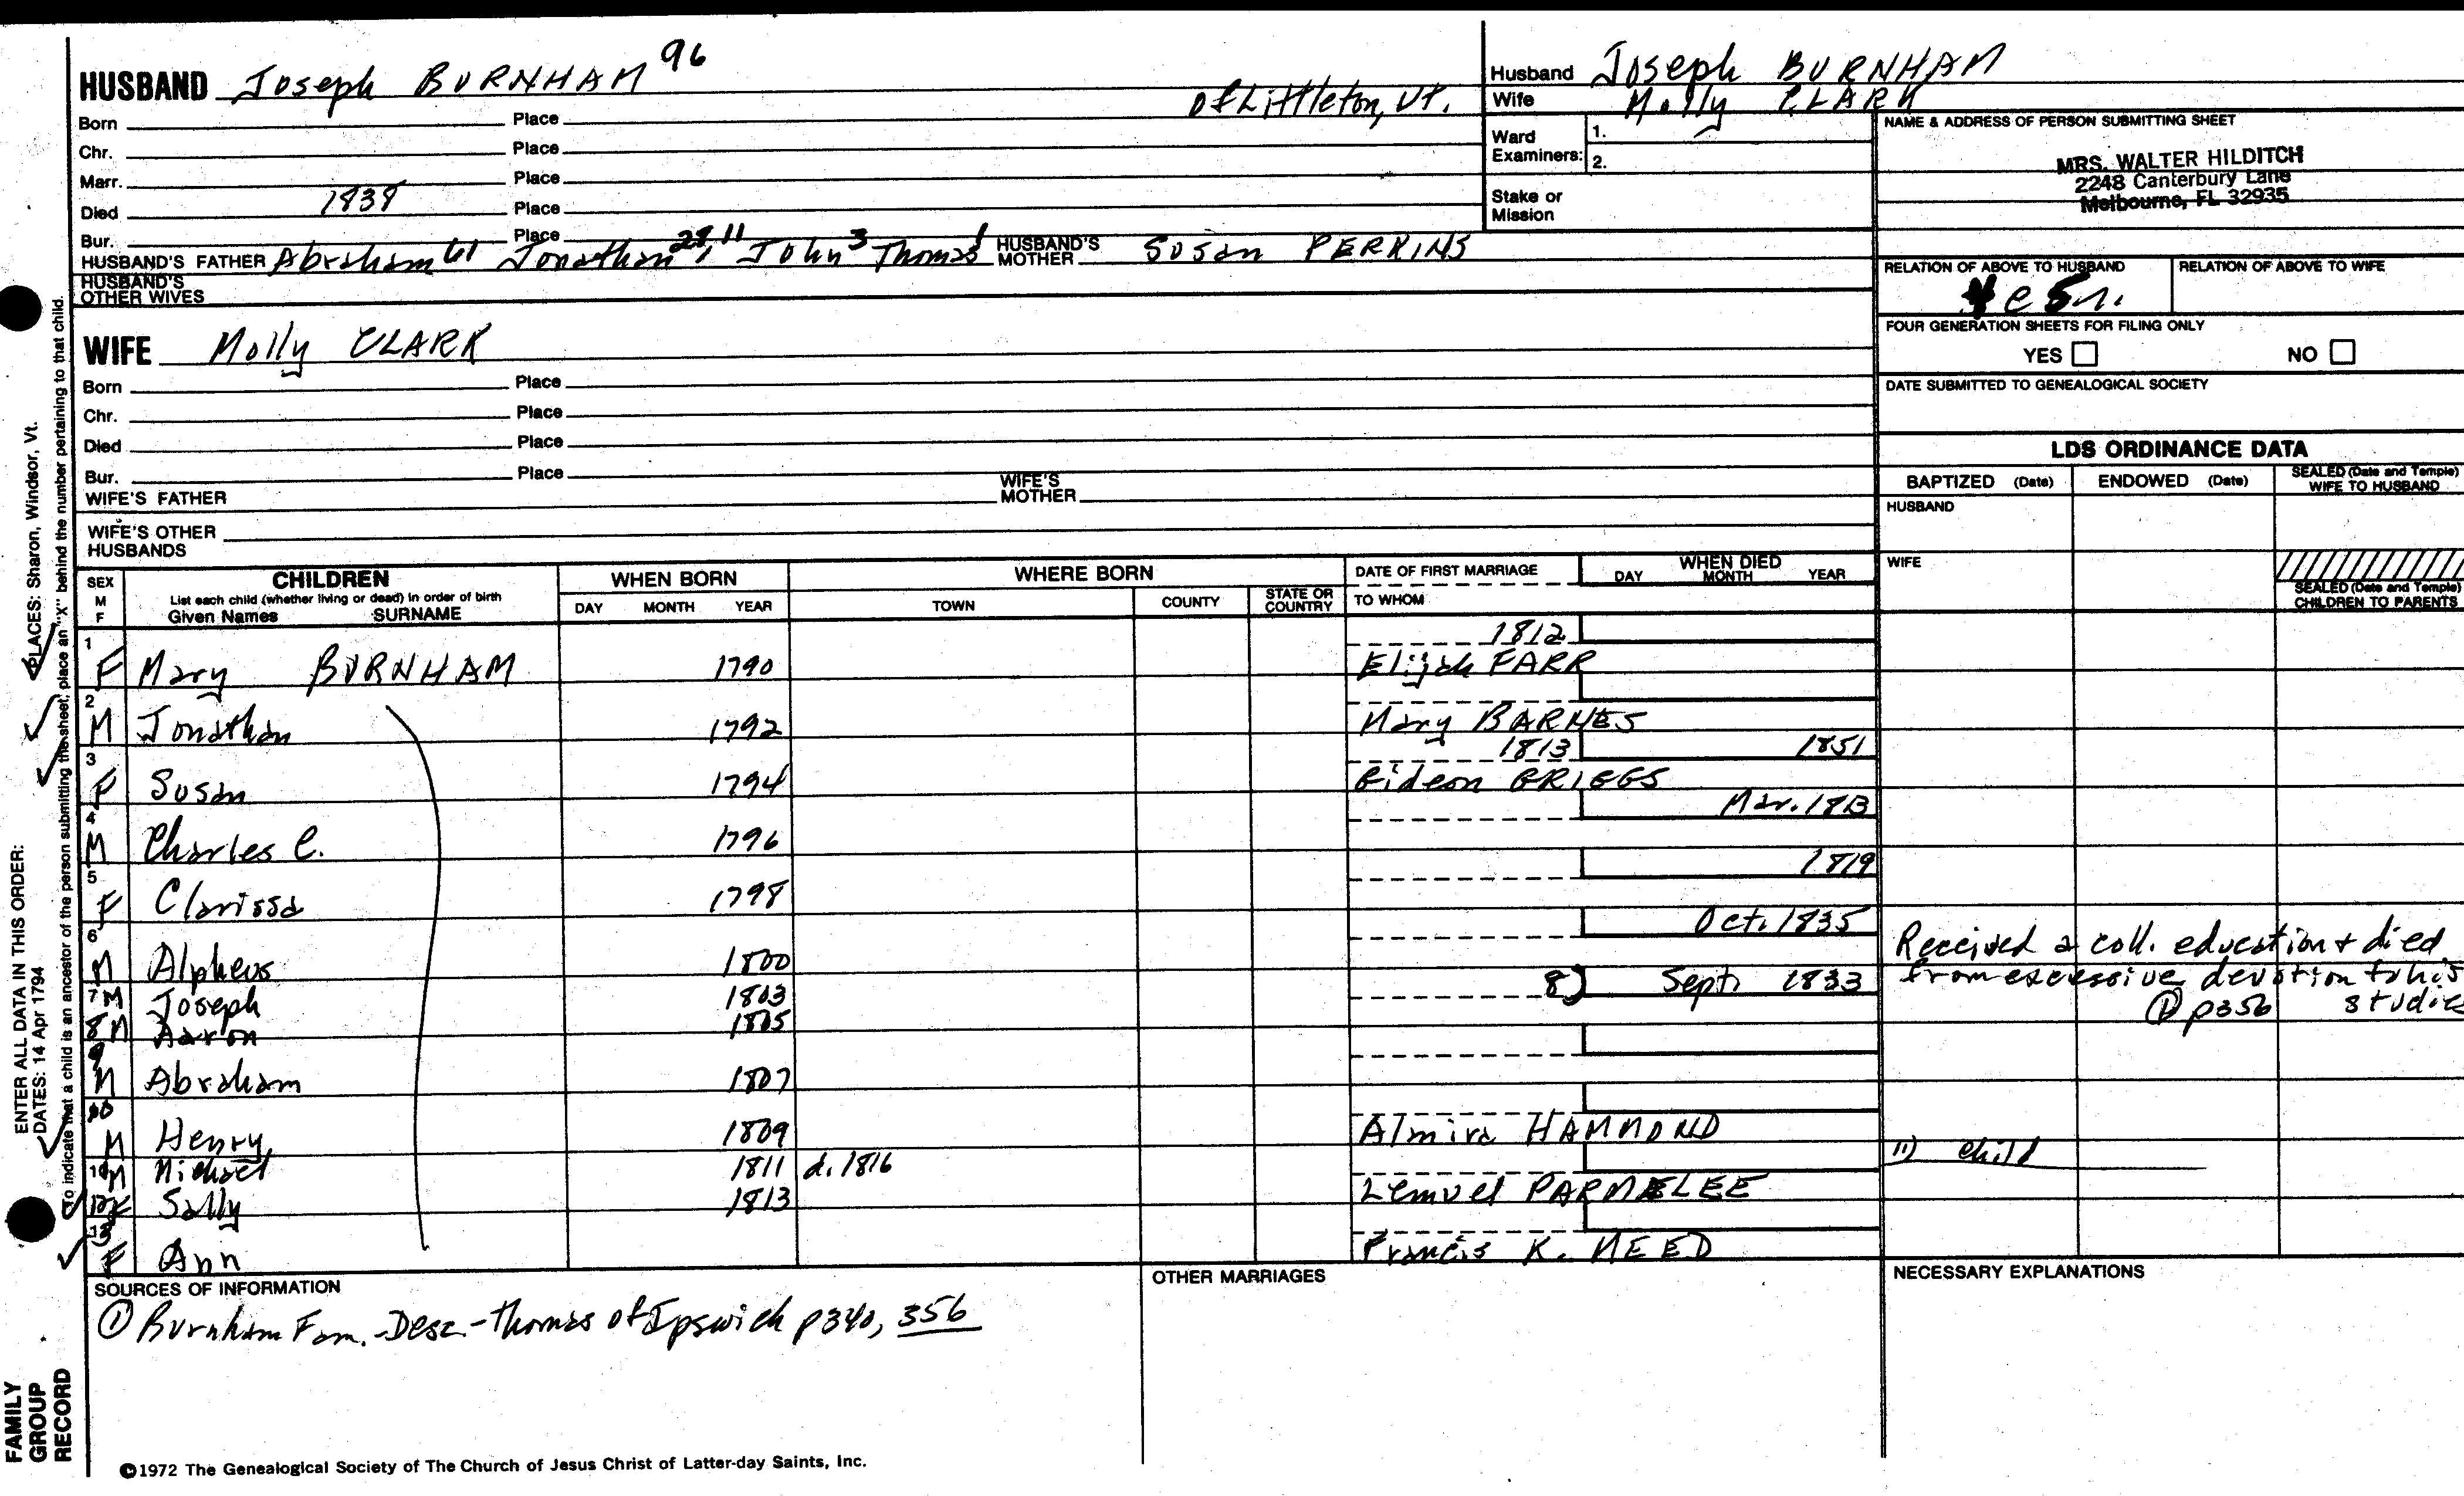 HUSBAND Joseph BURNHAM 96
of Littleton, Vt.
Born Place
Chr. Place
Marr. Place
Died 1838 Place
Bur. Place
HUSBAND'S FATHER Abraham 61 Jonathan 28, 11 John 3 Thomas 1 HUSBAND'S MOTHER Susan PERKINS
HUSBAND'S OTHER WIVES
WIFE Molly CLARK
Born Place
Chr. Place
Died Place
Bur. Place
WIFE'S FATHER WIFE'S MOTHER
WIFE'S OTHER HUSBANDS
Husband Joseph BURNHAM
Wife Molly CLARK
Ward Examiners: 1.
2.
Stake or Mission
NAME & ADDRESS OF PERSON SUBMITTING SHEET
MRS. WALTER HILDITCH
2248 Canterbury Lane
Melbourne, FL 32935
RELATION OF ABOVE TO HUSBAND RELATION OF ABOVE TO WIFE
FOUR GENERATION SHEETS FOR FILING ONLY
YES NO
DATE SUBMITTED TO GENEALOGICAL SOCIETY
LDS ORDINANCE DATA
BAPTIZED (Date) ENDOWED (Date) SEALED (Date and Temple) WIFE TO HUSBAND
HUSBAND
WIFE
SEALED (Date and Temple) CHILDREN TO PARENTS
SEX M F CHILDREN List each child (whether living or dead) in order of birth Given Names SURNAME
WHEN BORN DAY MONTH YEAR
WHERE BORN TOWN COUNTY STATE OR COUNTRY
DATE OF FIRST MARRIAGE TO WHOM
WHEN DIED DAY MONTH YEAR
1 F Mary BURNHAM 1790 1812 Elijah FARR
2 M Jonathan 1792 Mary BARNES
3 F Susan 1794 1813 Gideon GRIGGS 1851
4 M Charles C. 1796 Mar. 1813
5 F Clarissa 1798 1819
6 M Alpheus 1800 Oct. 1835
Received a coll. education & died from excessive devotion to his studies
① p356
7 M Joseph 1803
8 M Aaron 1805 8) Sept. 1833
9 M Abraham 1807
10 M Henry 1809 Almira HAMMOND
M Michael 1811 d. 1816
11) child
12 F Sally 1813 Lemuel PARMELEE
13 F Ann Francis K. NEED
SOURCES OF INFORMATION
① Burnham Fam. - Desc - Thomas of Ipswich p340, 356
OTHER MARRIAGES
NECESSARY EXPLANATIONS
©1972 The Genealogical Society of The Church of Jesus Christ of Latter-day Saints, Inc.
FAMILY GROUP RECORD
ENTER ALL DATA IN THIS ORDER:
DATES: 14 Apr 1794
PLACES: Sharon, Windsor, Vt.
To indicate that a child is an ancestor of the person submitting the sheet, place an "X" behind the number pertaining to that child.